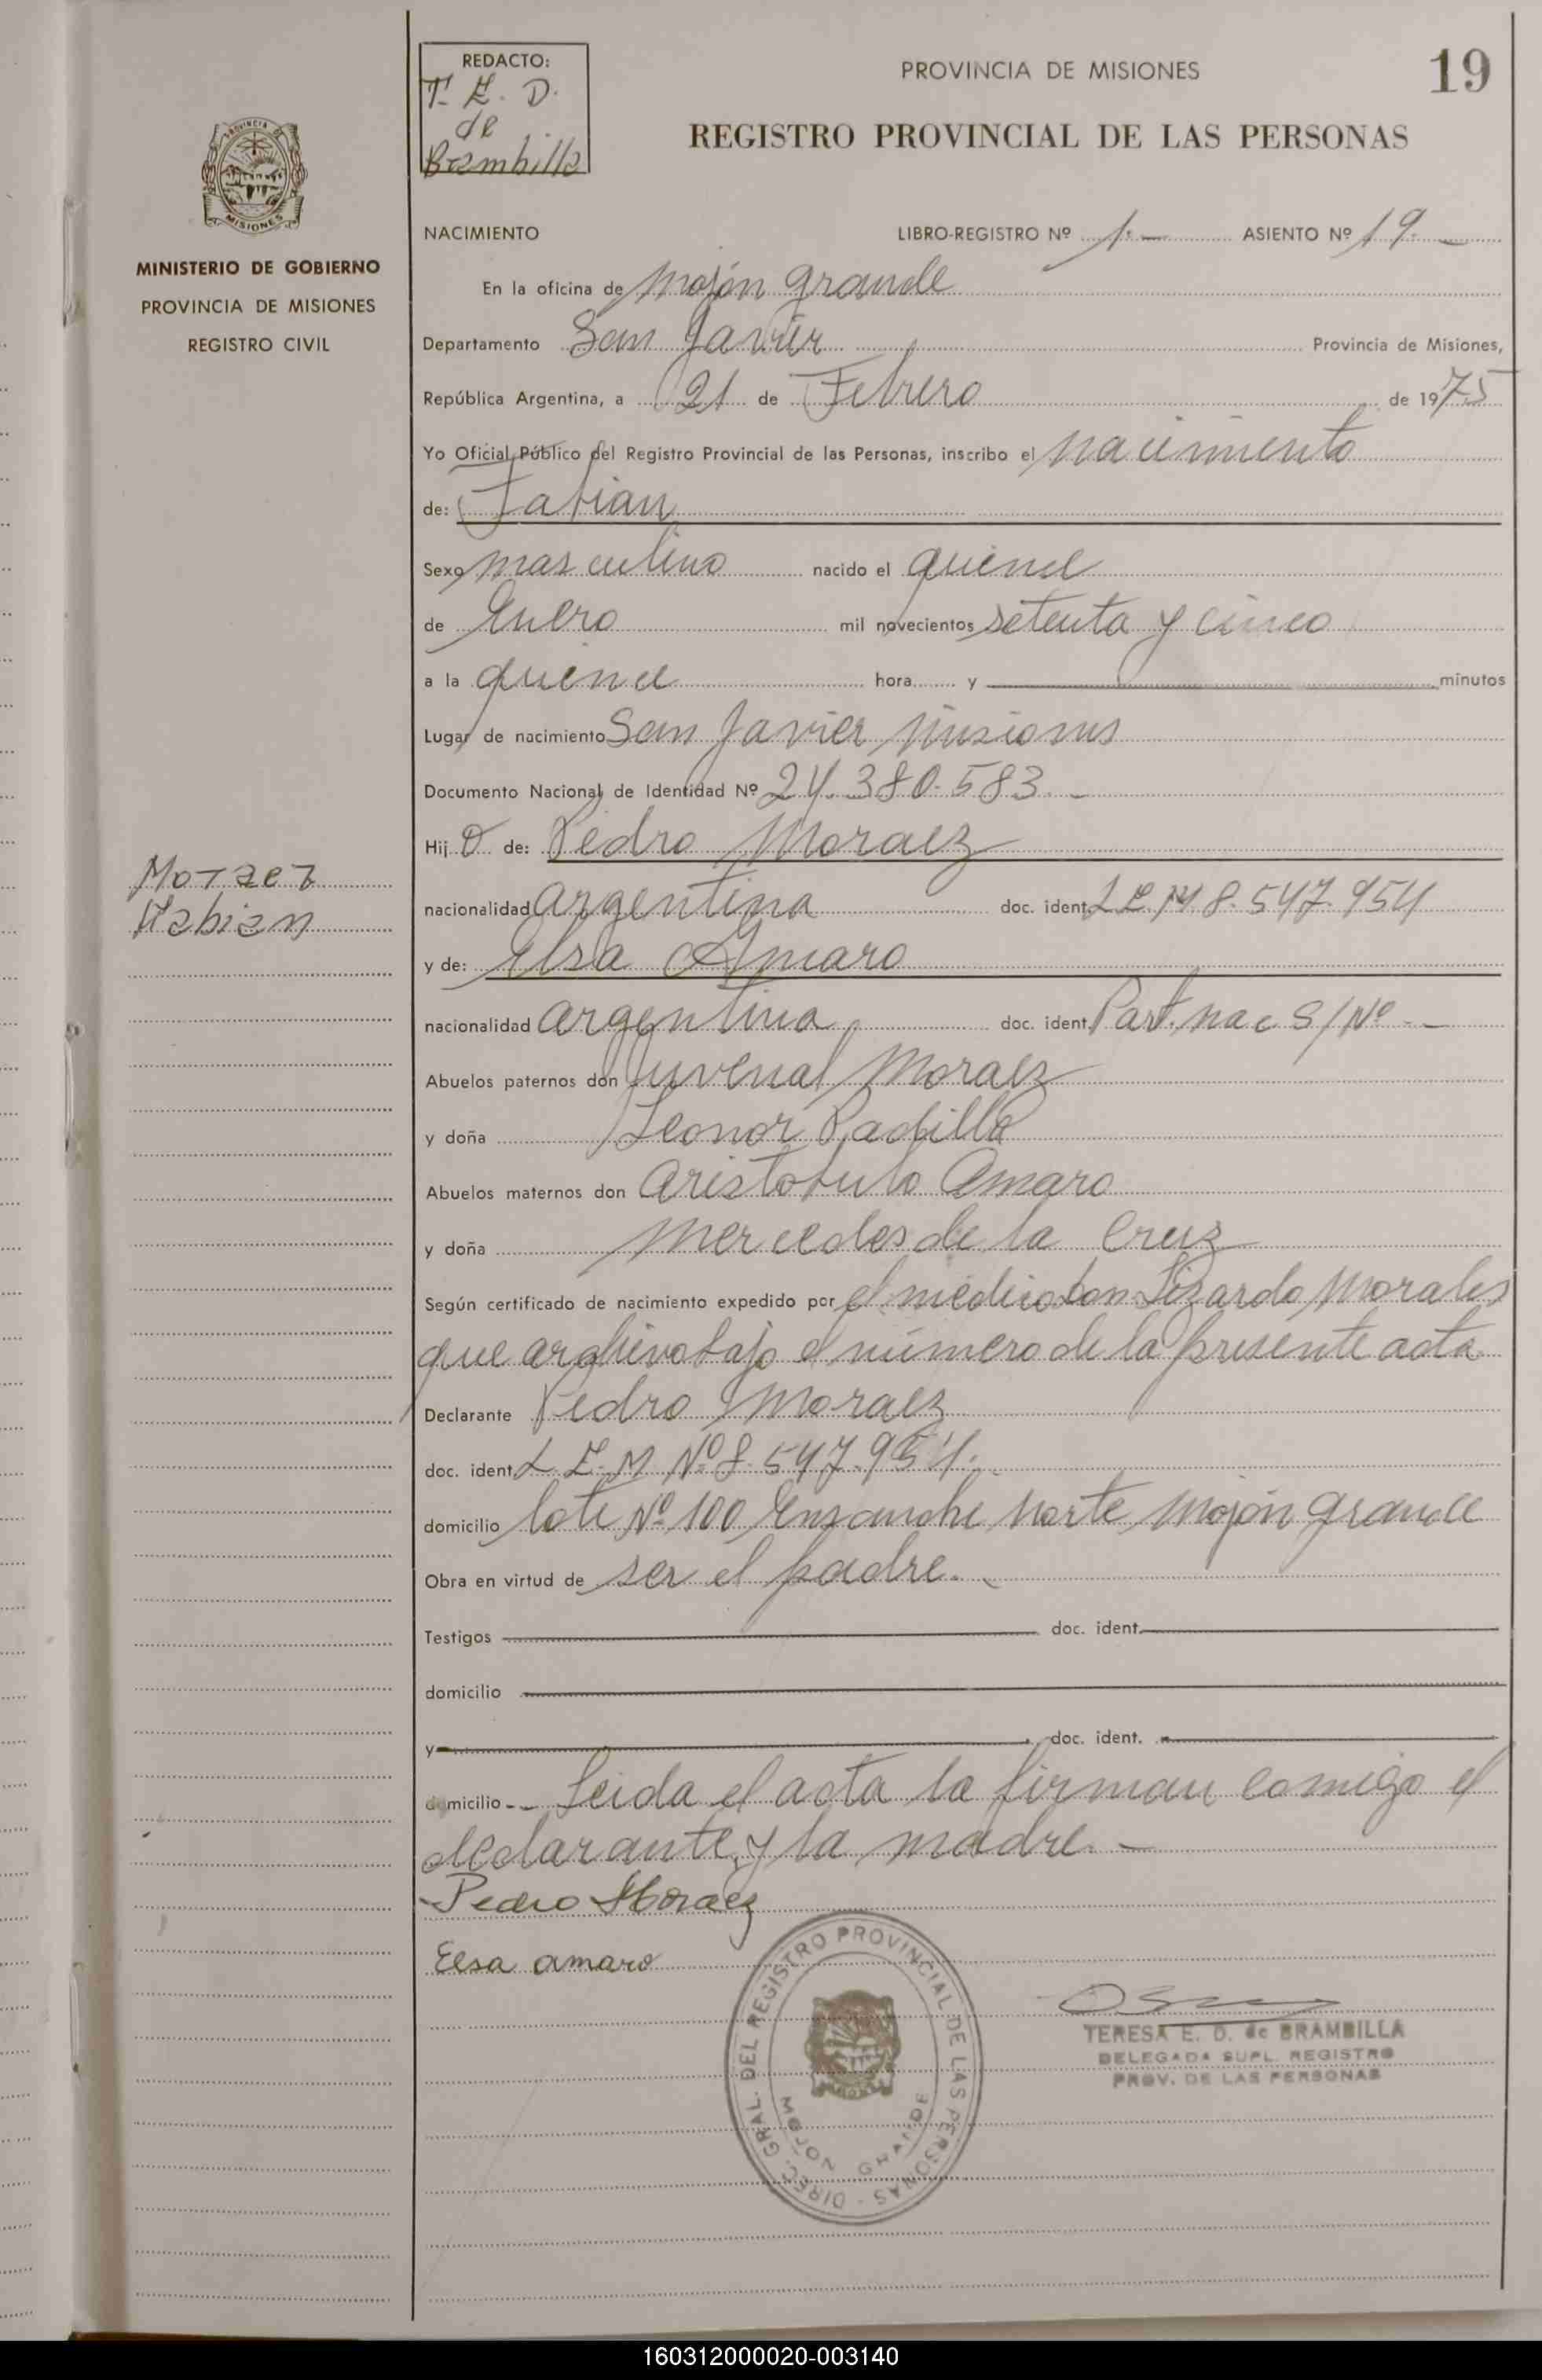 REDACTO:
T. E. D.
de
Brambilla
PROVINCIA DE MISIONES
19
REGISTRO PROVINCIAL DE LAS PERSONAS
PROVINCIA DE
MISIONES
MINISTERIO DE GOBIERNO
PROVINCIA DE MISIONES
REGISTRO CIVIL
NACIMIENTO LIBRO-REGISTRO Nº 1.— ASIENTO Nº 19.—
En la oficina de Mojón grande
Departamento San Javier Provincia de Misiones,
República Argentina, a 21 de Febrero de 1975
Yo Oficial Público del Registro Provincial de las Personas, inscribo el nacimiento
de: Fabian
Sexo masculino nacido el quince
de Enero mil novecientos setenta y cinco
a la quince hora y — minutos
Lugar de nacimiento San Javier Misiones
Documento Nacional de Identidad Nº 24.380.583.-
Hij o de: Pedro Moraez
Moraez
Fabian
nacionalidad argentina doc. ident. L E M 8.547.954
y de: Elsa Amaro
nacionalidad argentina doc. ident. Part. nac S/Nº.-
Abuelos paternos don Juvenal Moraez
y doña Leonor Padilla
Abuelos maternos don Aristobulo Amaro
y doña Mercedes de la Cruz
Según certificado de nacimiento expedido por el médico don Lizardo Morales
que archivo bajo el número de la presente acta
Declarante Pedro Moraez
doc. ident. L. E. M Nº 8.547.954.
domicilio lote Nº 100 Ensanche Norte, Mojón grande
Obra en virtud de ser el padre.-
Testigos — doc. ident. —
domicilio —
y — doc. ident. —
domicilio -- Leida el acta la firman comigo el
declarante y la madre.—
Pedro Moraez
Elsa amaro
DIREC. GRAL. DEL REGISTRO PROVINCIAL DE LAS PERSONAS -
MOJON GRANDE
TERESA E. D. de BRAMBILLA
DELEGADA SUPL. REGISTRO
PROV. DE LAS PERSONAS
160312000020-003140